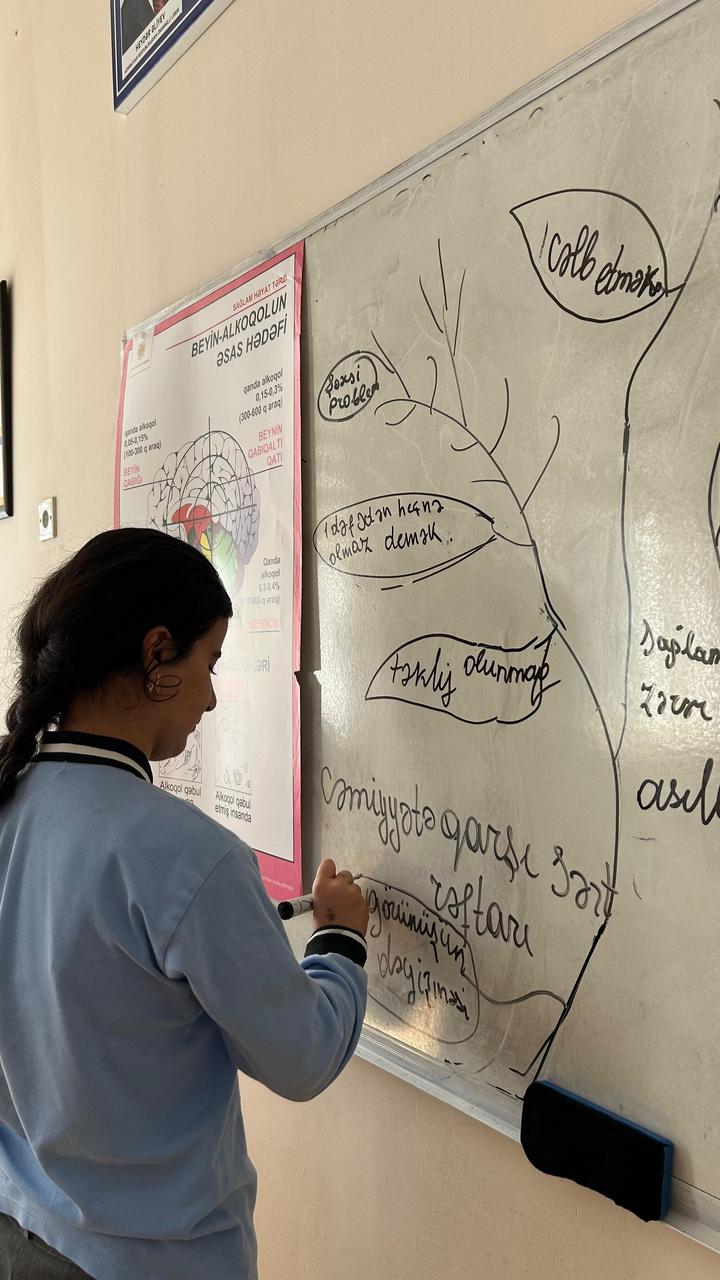 HEYDƏR ƏLİYEV
SAĞLAM HƏYAT TƏRZİ
BEYİN-ALKOQOLUN
ƏSAS HƏDƏFİ
qanda alkoqol
0,15-0,3%
(300-600 q araq)
qanda alkoqol
0,05-0,15%
(100-300 q araq)
BEYNİN
QABIQALTI
QATI
BEYİN
QABIĞI
Qanda
alkoqol
q araq)
Alkoqol qəbul
Alkoqol qəbul
etmiş insanda
cəlb etmək
Şəxsi
problem
1 dəfədən heçnə
olmaz demək..
təklif olunmaq
cəmiyyətə qarşı sərt
rəftarı
görünüşün
dəyişməsi
Zərər